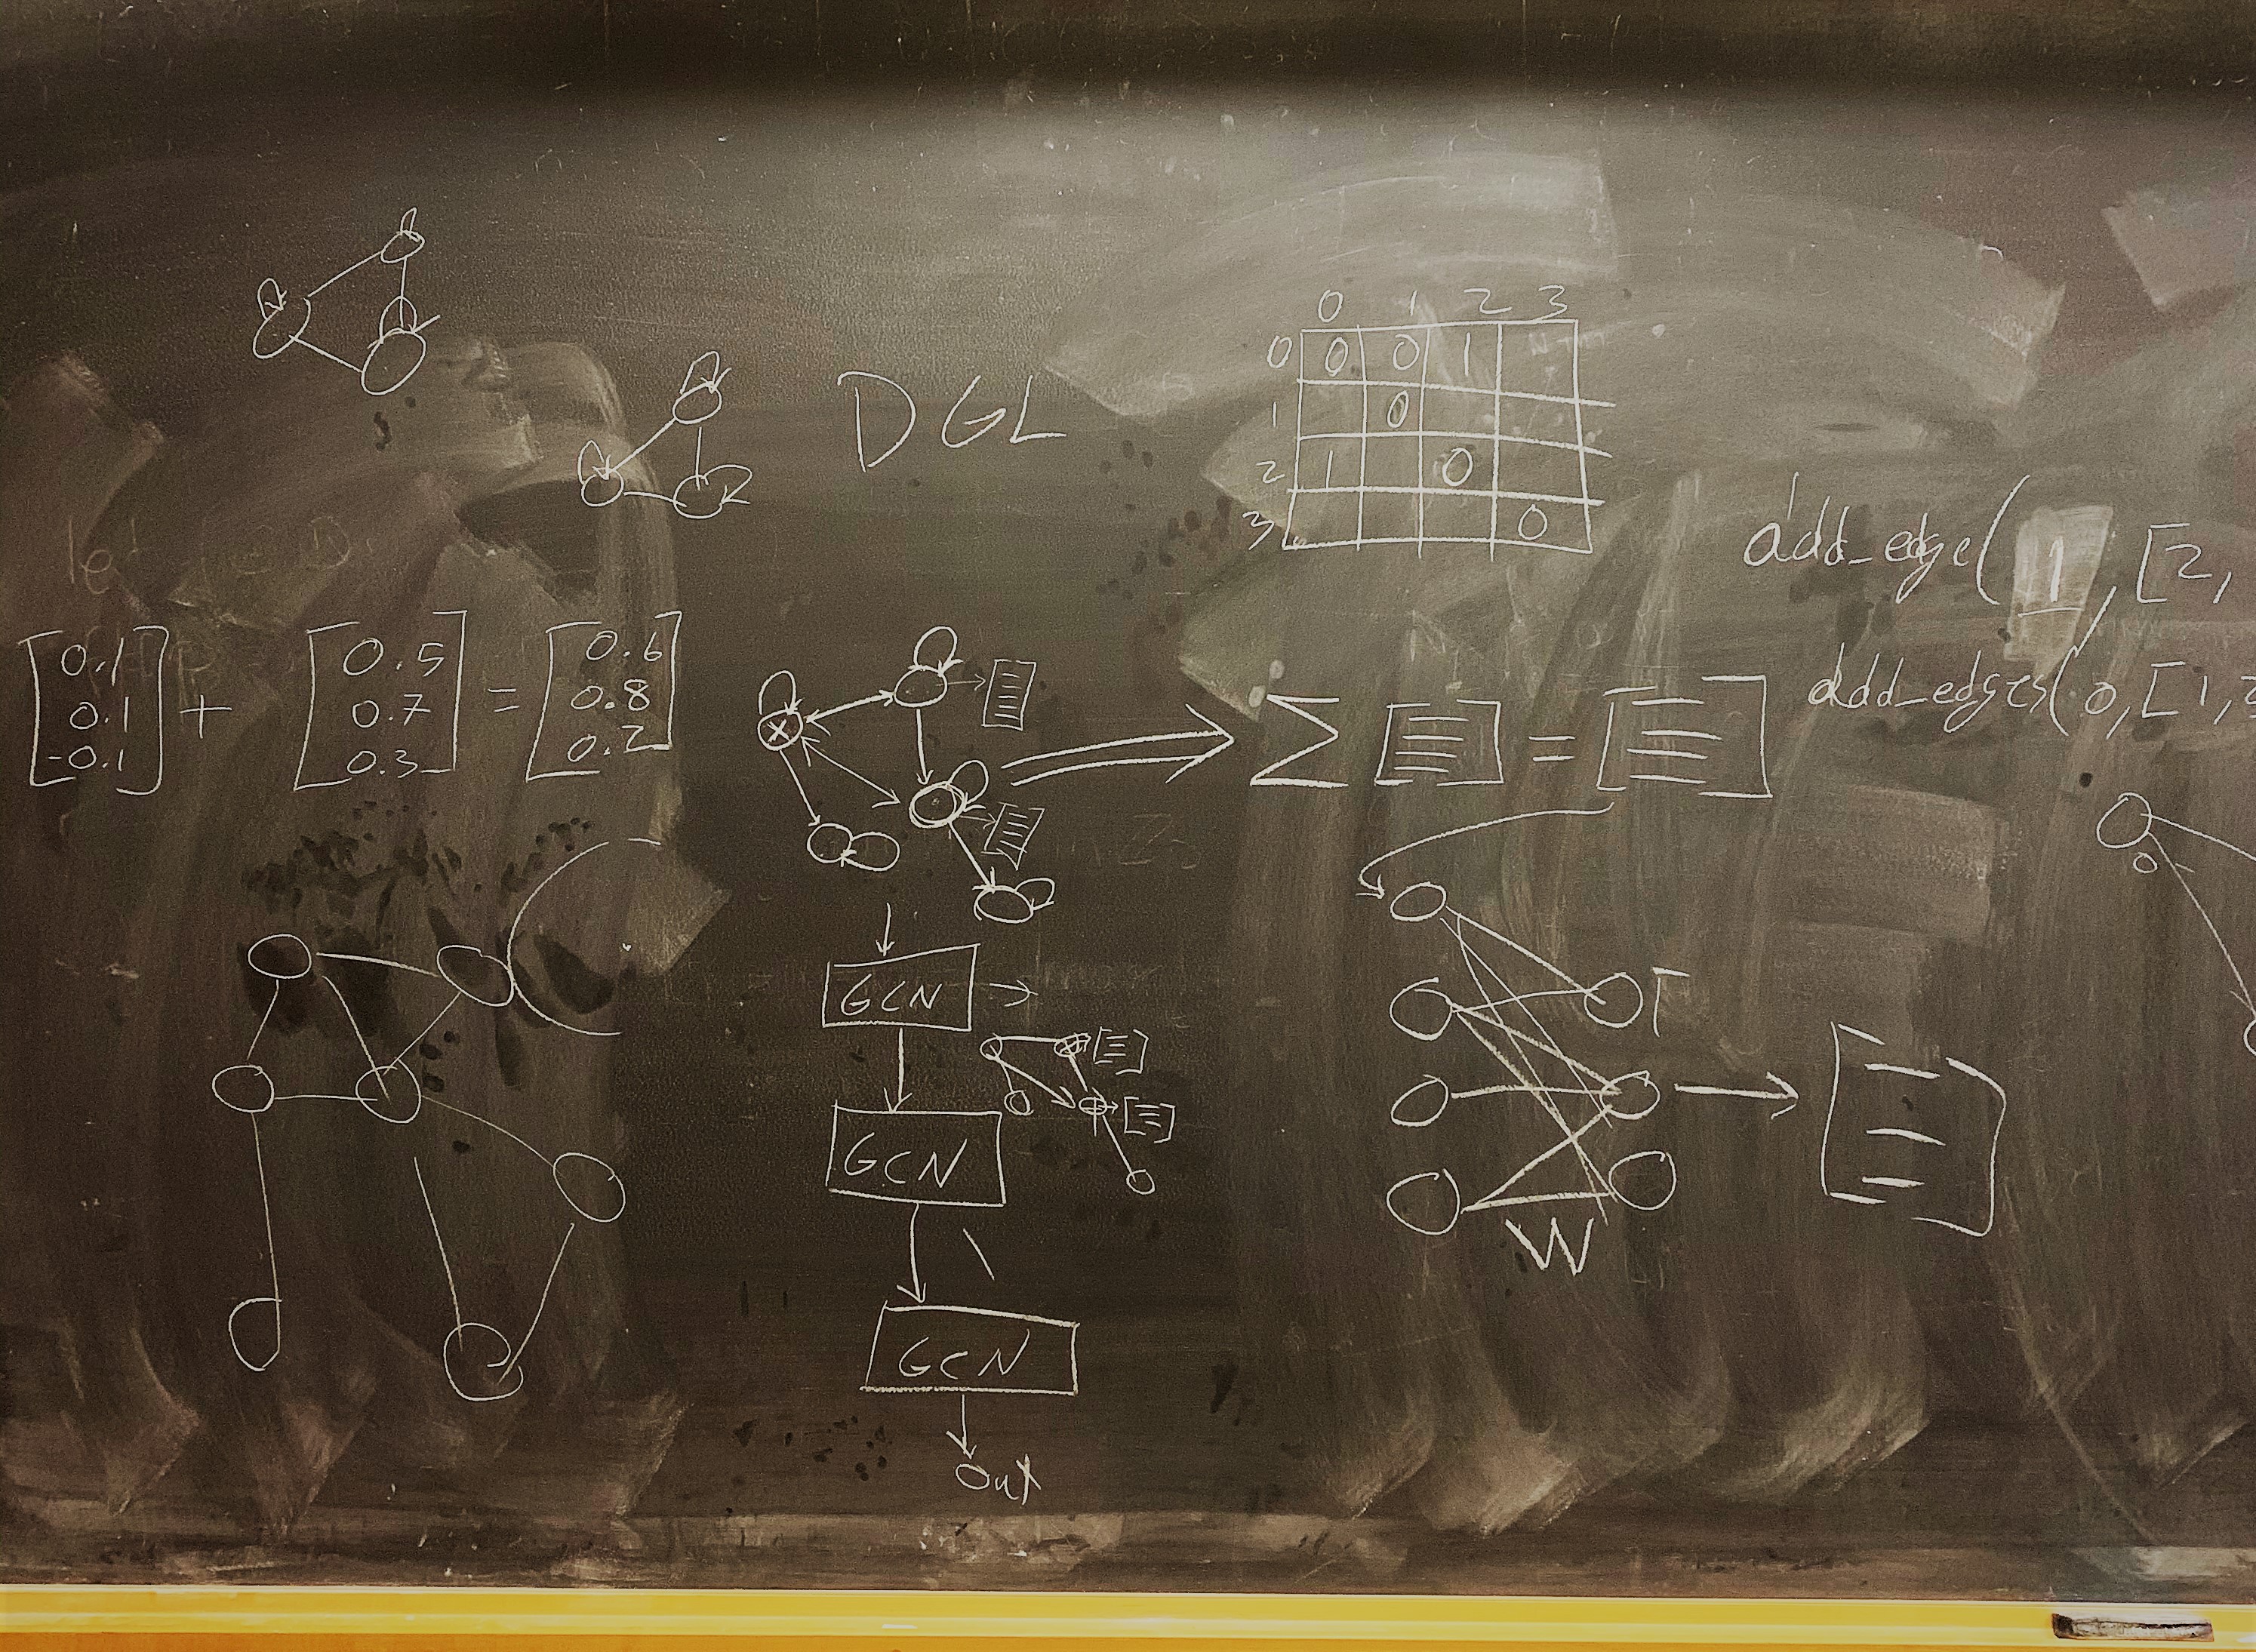 DGL
0 1 2 3
0 0 0 1
1 0
2 1 0
3 0
add_edge(1, [2,
add_edges(0, [1,
[0.1 0.1 -0.1] + [0.5 0.7 0.3] = [0.6 0.8 0.2]
Σ [ ] = [ ]
0
GCN
GCN
GCN
W
Out